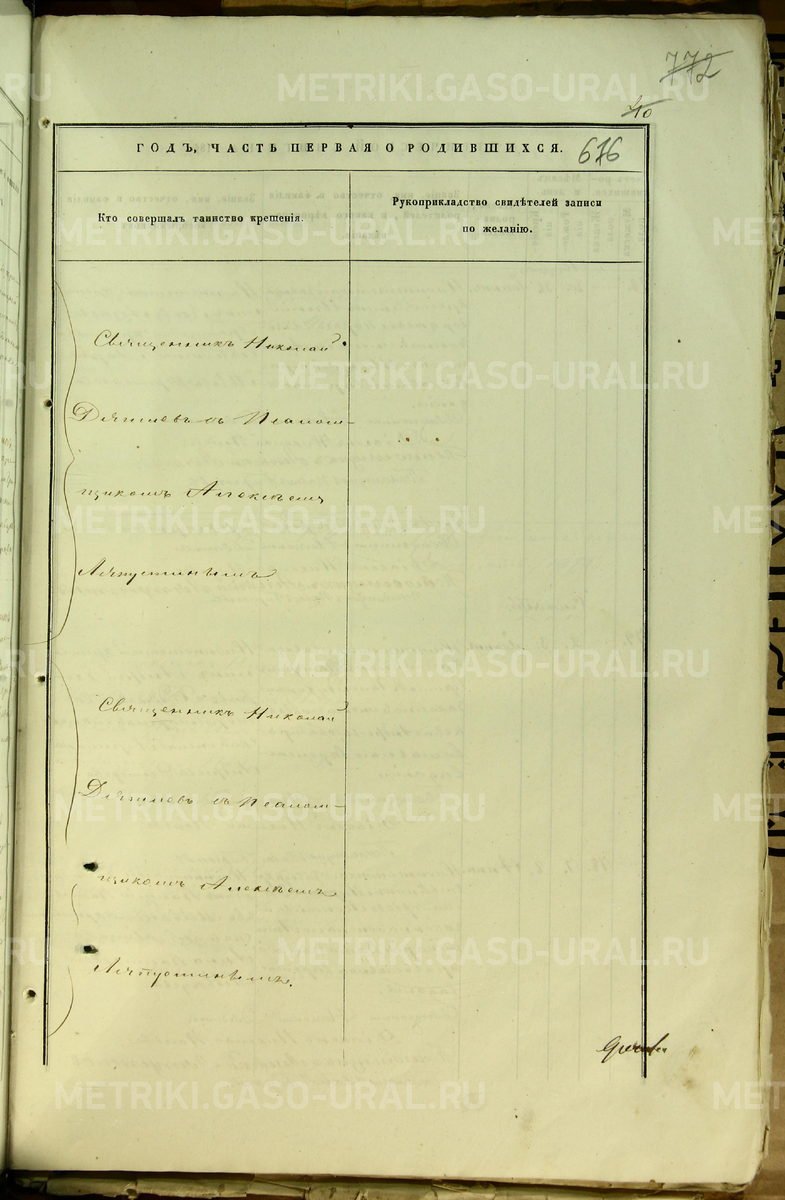 772
40
ГОДЪ, ЧАСТЬ ПЕРВАЯ О РОДИВШИХСЯ. 676
Кто совершалъ таинство крещенія.
Рукоприкладство свидѣтелей записи
по желанію.
Священникъ Николай
Дягилевъ съ Псалом-
щикомъ Алексѣемъ
Ляпустинымъ
Священникъ Николай
Дягилевъ съ Псалом-
щикомъ Алексѣемъ
Ляпустинымъ.
METRIKI.GASO-URAL.RU